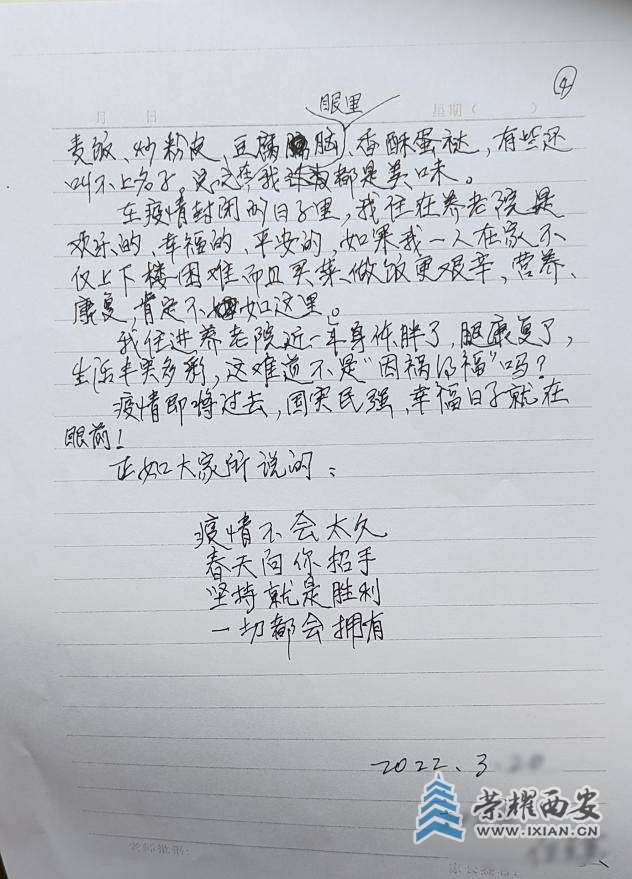 ④
月 日 星期（ ）
眼里
麦饭、炒粉皮、豆腐脑、香酥蛋挞，有些还
叫不上名子，这在我都是美味。
在疫情封闭的日子里，我住在养老院是
欢乐的、幸福的、平安的，如果我一人在家不
仅上下楼困难而且买菜、做饭更艰辛，营养、
康复肯定不如这里。
我住进养老院近一年身体胖了，腿康复了，
生活丰实多彩，这难道不是“因祸得福”吗？
疫情即将过去，国实民强，幸福日子就在
眼前！
正如大家所说的：
疫情不会太久
春天向你招手
坚持就是胜利
一切都会拥有
2022.3.20
荣耀西安
WWW.IXIAN.CN